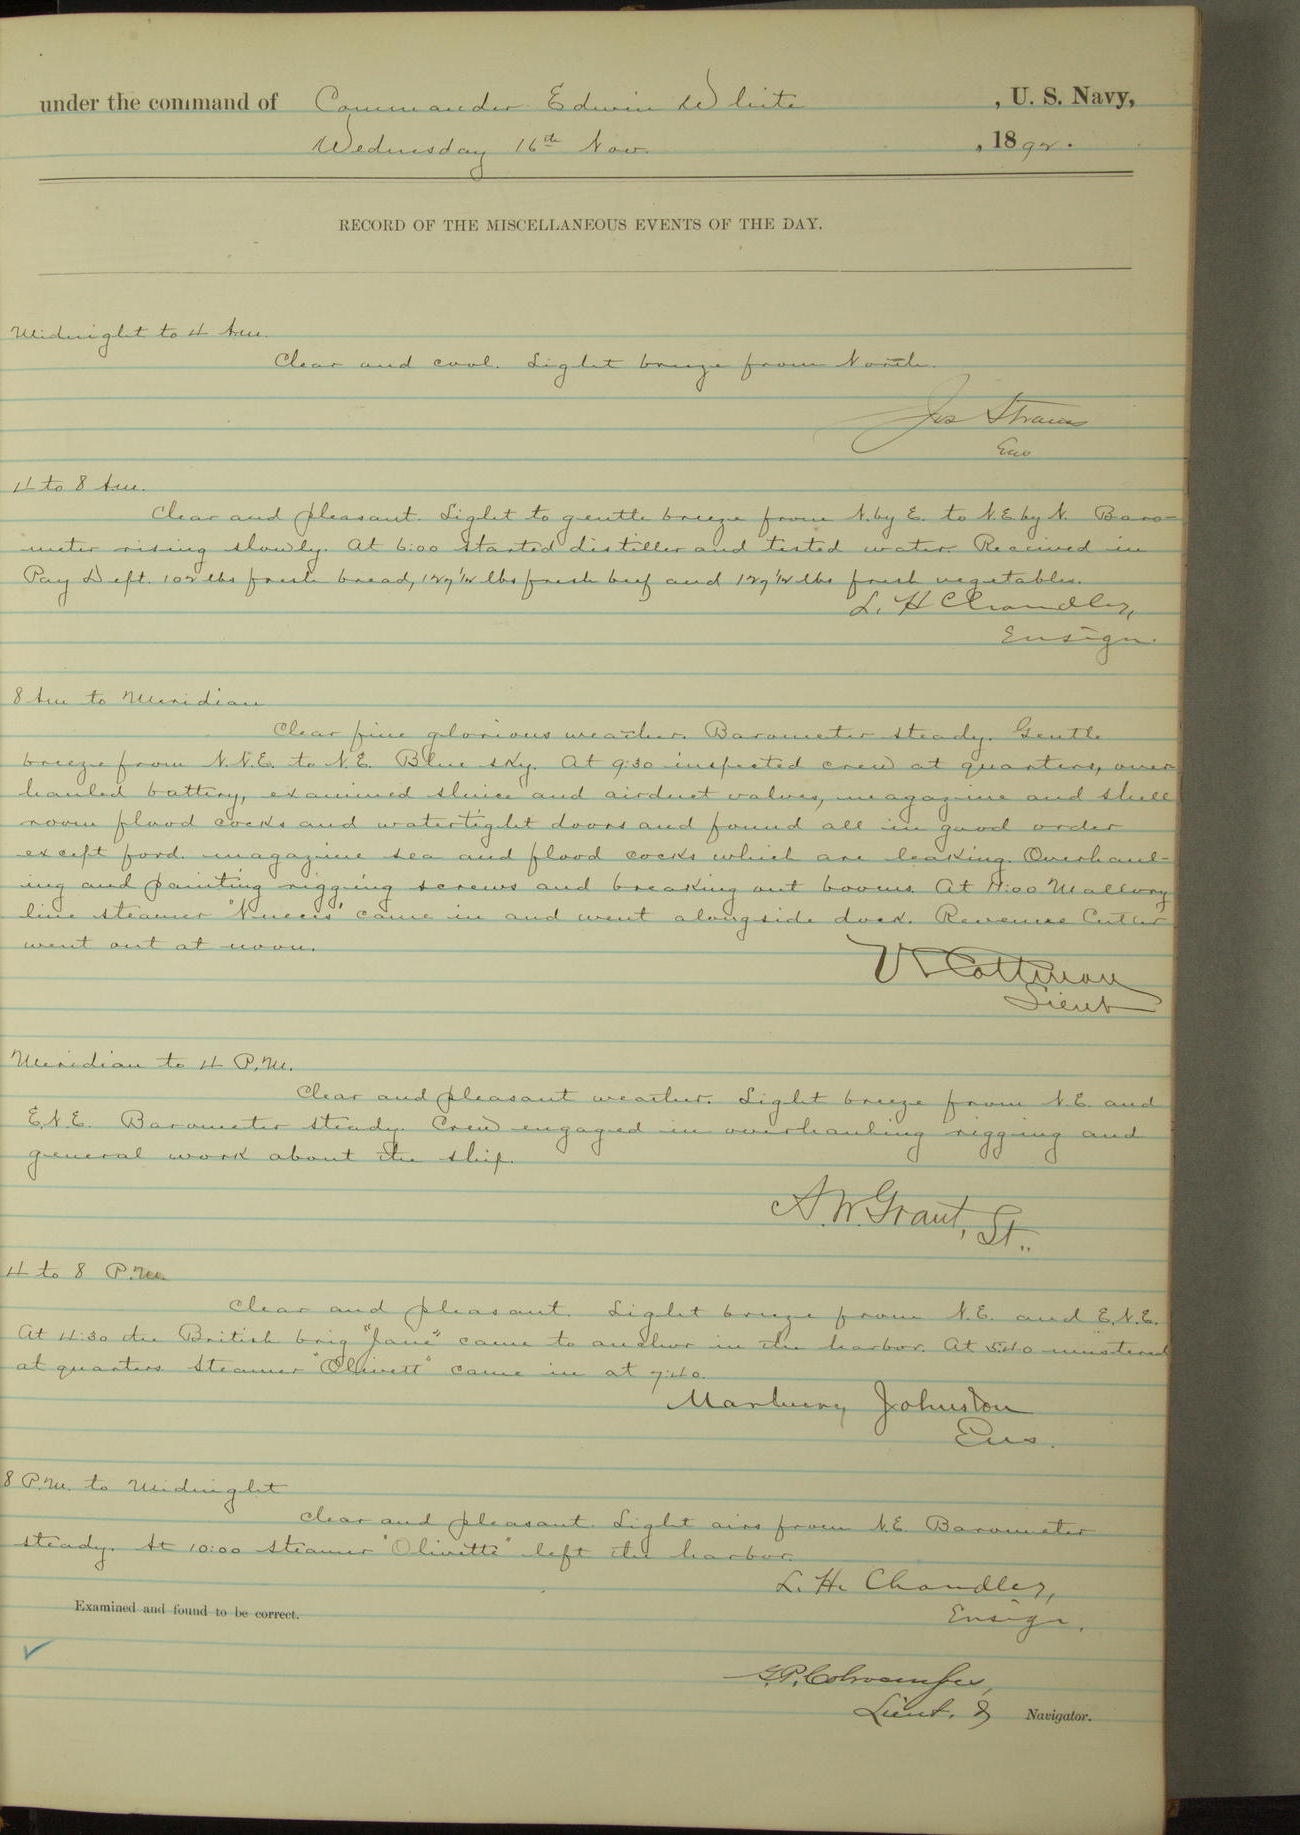 under the command of Commander Edwin White , U. S. Navy,
Wednesday 16th Nov. , 1892.
RECORD OF THE MISCELLANEOUS EVENTS OF THE DAY.
Midnight to 4 Am.
Clear and cool. Light breeze from North.
Jos Strauss
Ens
4 to 8 Am.
Clear and pleasant. Light to gentle breeze from N. by E. to N.E. by N. Baro-
meter rising slowly. At 6:00 started distiller and tested water. Received in
Pay Dept. 102 lbs fresh bread, 127 1/2 lbs fresh beef and 127 1/2 lbs fresh vegetables.
L. H Chandler,
Ensign.
8 Am to Meridian
Clear fine glorious weather. Barometer steady. Gentle
breeze from N.N.E. to N.E. Blue sky. At 9:30 inspected crew at quarters, over
hauled battery, examined sluice and airduct valves, magazine and shell
room flood cocks and watertight doors and found all in good order
except ford. magazine sea and flood cocks which are leaking. Overhaul-
ing and painting rigging screws and breaking out booms. At 11:00 Mallory
line steamer "Nueces" came in and went alongside dock. Revenue Cutter
went out at noon.
V S Cottman
Lieut
Meridian to 4 P.M.
Clear and pleasant weather. Light breeze from N.E. and
E.N.E. Barometer steady. Crew engaged in overhauling rigging and
general work about the ship.
A. W. Grant, Lt..
4 to 8 P.M.
Clear and pleasant. Light breeze from N.E. and E.N.E.
At 4:30 the British brig "Jane" came to anchor in the harbor. At 5:40 mustered
at quarters Steamer "Olivett" came in at 7:40.
Marbury Johnston
Ens.
8 P.M. to Midnight
Clear and pleasant. Light airs from N.E. Barometer
steady. At 10:00 steamer "Olivette" left the harbor.
L. H. Chandler,
Ensign.
Examined and found to be correct.
G.P. Colvocoresses,
Lieut. & Navigator.